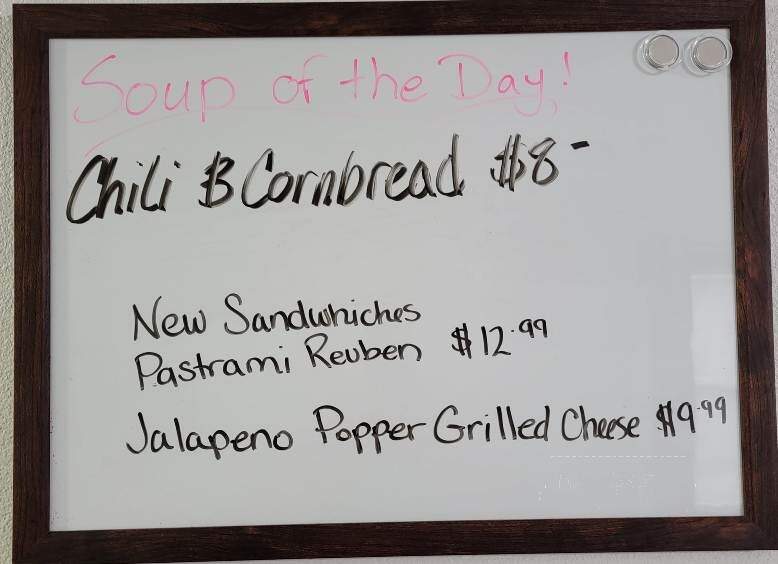 Soup of the Day!
Chili & Cornbread $8-
New Sandwhiches
Pastrami Reuben $12.99
Jalapeno Popper Grilled Cheese $9.99